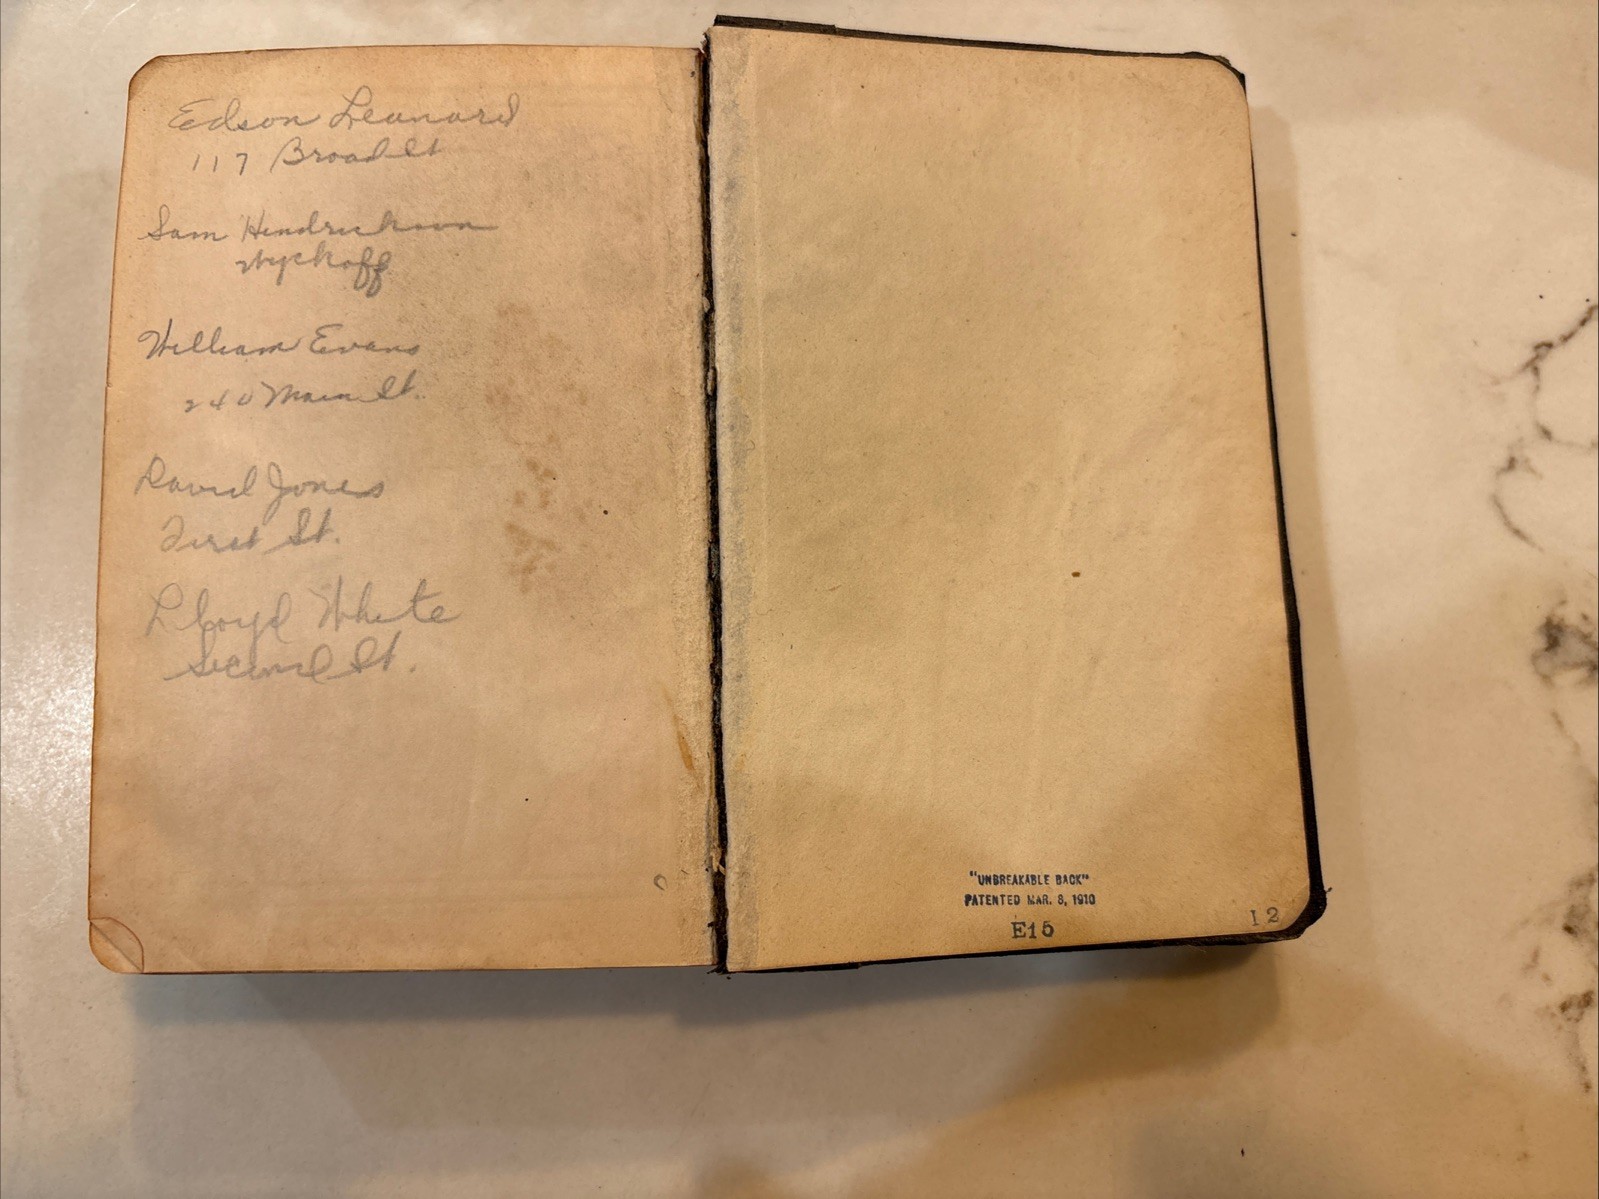 Edson Leanard
117 Broad St
Sam Hendrickson
Wyckoff
William Evans
240 Main St.
David Jones
First St.
Lloyd White
Second St.
"UNBREAKABLE BACK"
PATENTED MAR. 8, 1910
E15
I2